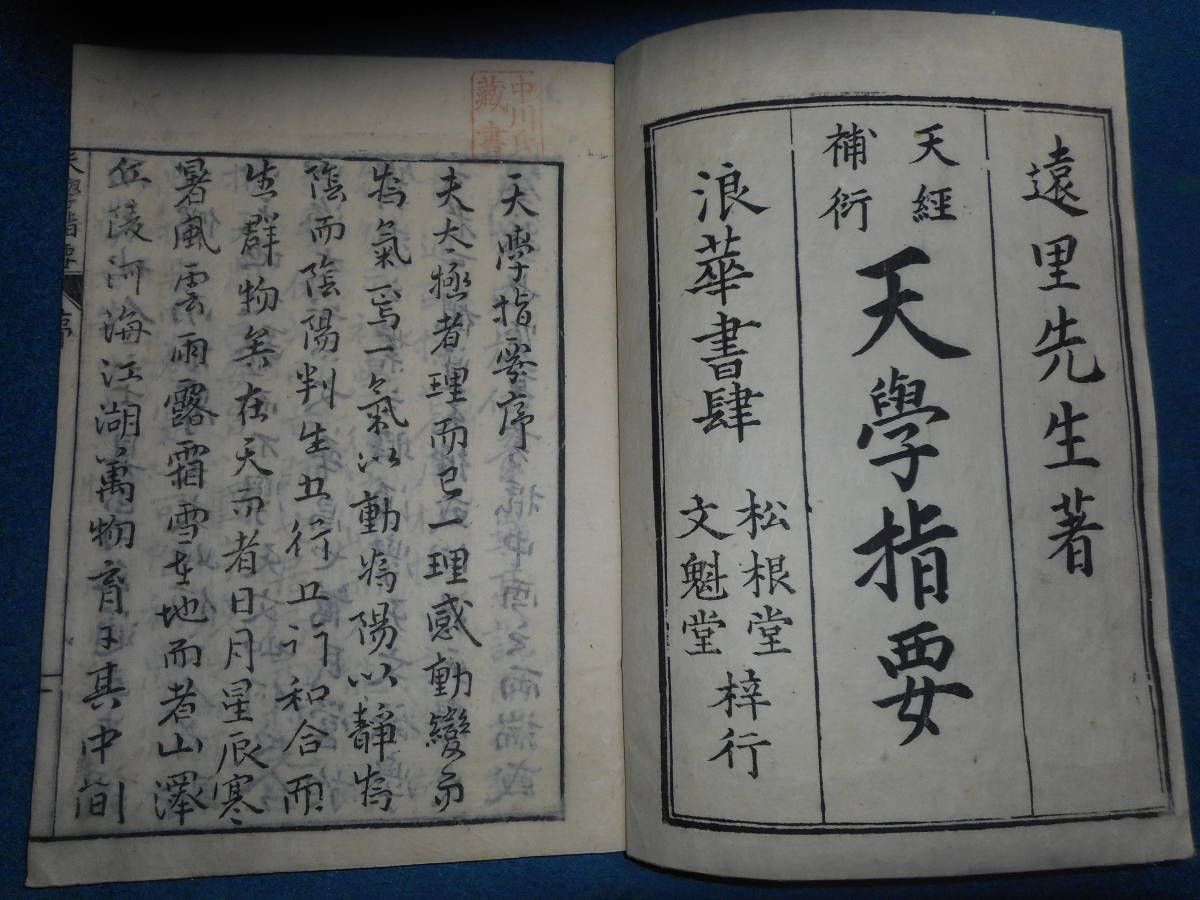 遠里先生著
天經
補衍
天學指要
浪華書肆
松根堂
文魁堂
梓行
中川氏
藏書
天學指要序
夫太極者理而已一理感動變而
為氣焉一氣以動為陽以靜為
陰而陰陽判生五行五行和合而
生群物矣在天而者日月星辰寒
暑風雲雨露霜雪在地而者山澤
丘陵河海江湖萬物育于其中間
天學指要
序
一